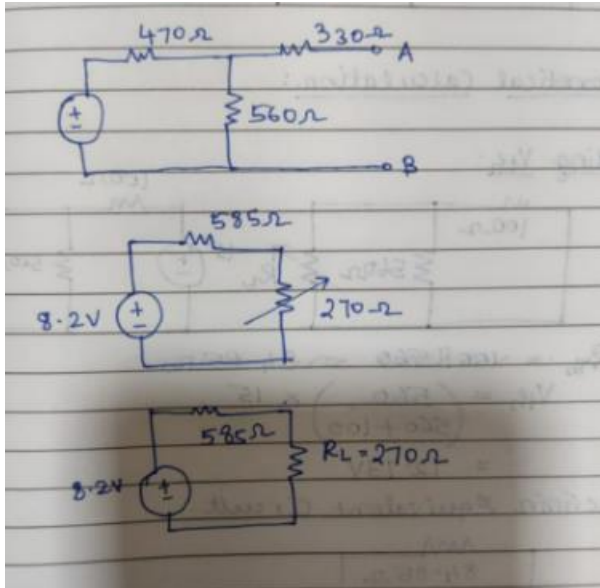 470Ω 330Ω A
+
-
560Ω
B
585Ω
8.2V
+
-
270Ω
585Ω
RL=270Ω
8.2V
+
-